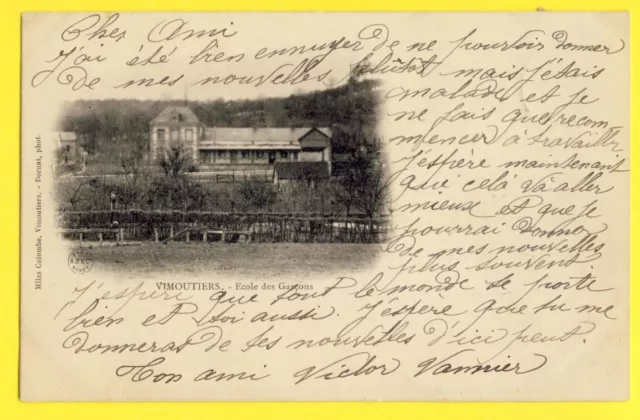 Cher Ami
J'ai été bien ennuyer de ne pouvoir donner
de mes nouvelles plutôt mais j'étais
malade et je
ne fais que recom
mencer à travailler
J'espère maintenant
que celà va aller
mieux et que je
pourrai donner
de mes nouvelles
plus souvent
J'espéri que tout le monde se porte
bien et toi aussi. J'espère que tu me
donneras de tes nouvelles d'ici peut.
Ton ami Victor Vannier
VIMOUTIERS. - Ecole des Garçons
Mlles Colombe, Vimoutiers. - Dornat, phot.